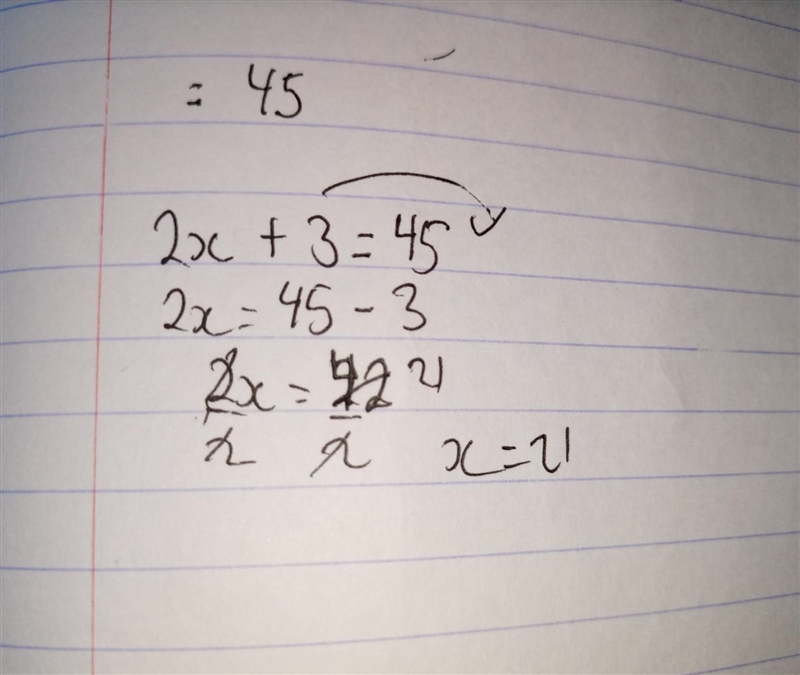 = 45
2x + 3 = 45
2x = 45 - 3
2x = 42 21
2 2 x = 21